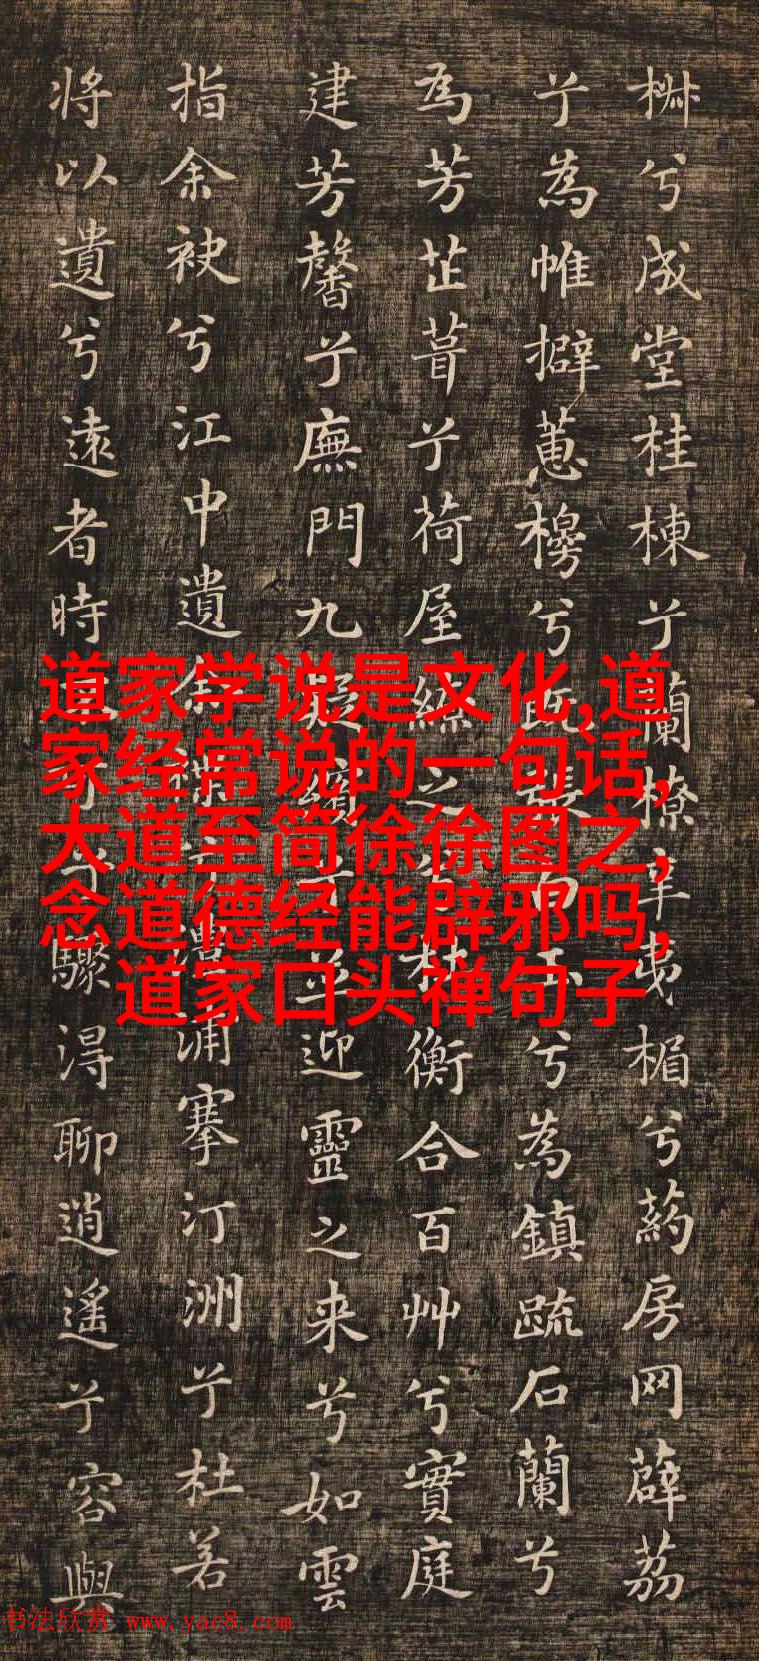 椒兮成堂桂棟兮蘭橑辛夷楣兮葯房网薜荔
兮為帷擗蕙櫋兮既張白玉兮為鎮疏石蘭兮
為芳芷葺兮荷屋繚之兮杜衡合百艸兮實庭
建芳馨兮廡門九疑繽兮並迎靈之来兮如雲
捐余袂兮江中遺余褋兮澧浦搴汀洲兮杜若
将以遺兮遠者時不可兮驟得聊逍遥兮容與
道家学说是文化,道
家经常说的一句话,
大道至简徐徐图之,
念道德经能辟邪吗,
道家口头禅句子
书法欣赏 www.yac8.com